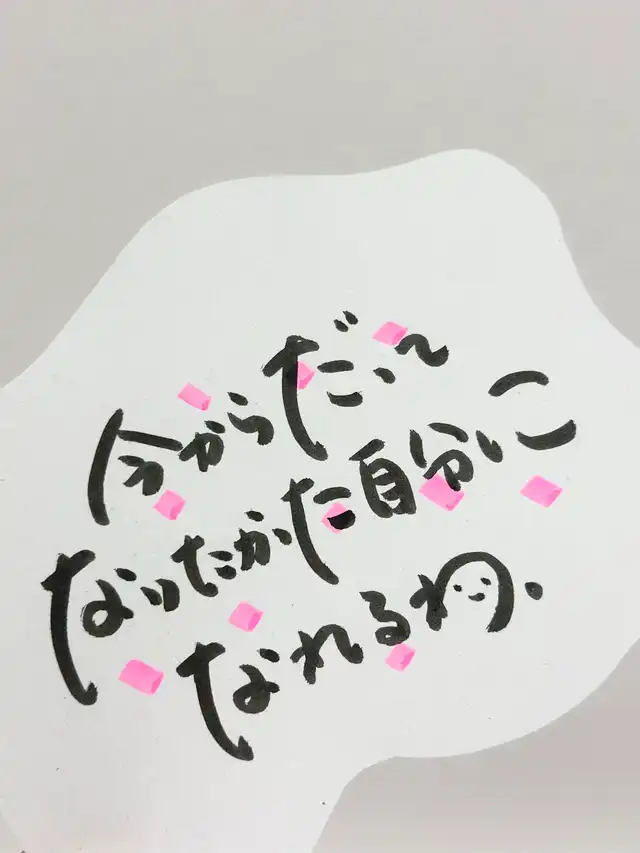 今からだって
なりたかた自分に
なれるわ、